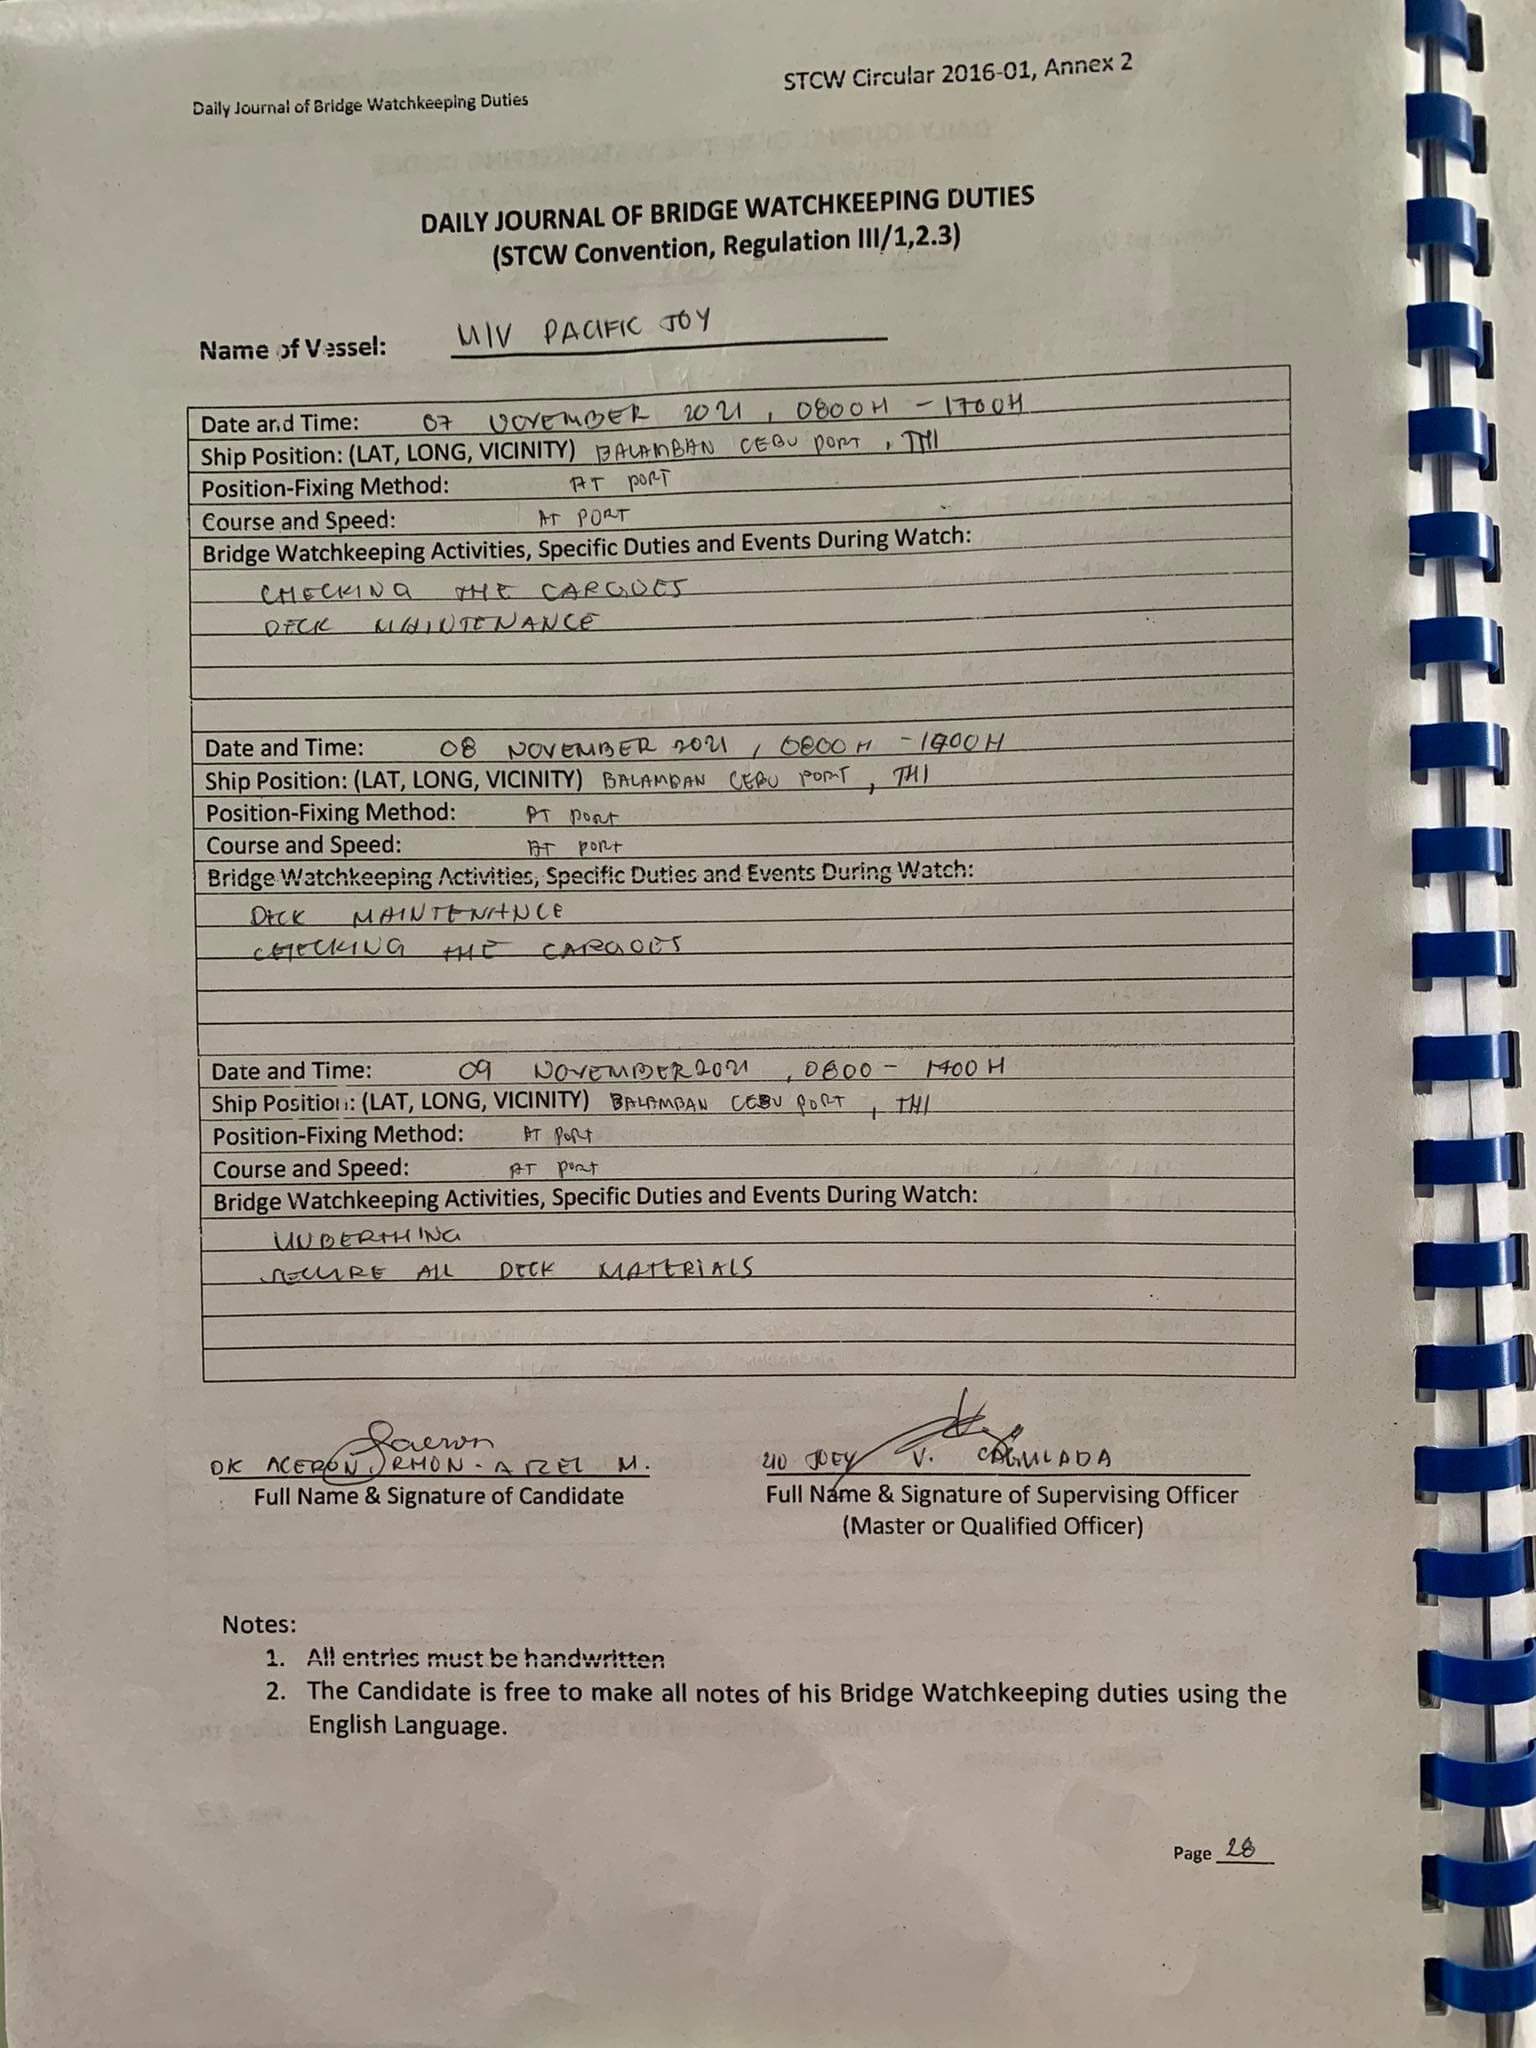 Daily Journal of Bridge Watchkeeping Duties
STCW Circular 2016-01, Annex 2
DAILY JOURNAL OF BRIDGE WATCHKEEPING DUTIES
(STCW Convention, Regulation III/1,2.3)
Name of Vessel: M/V PACIFIC JOY
Date and Time: 07 NOVEMBER 2021, 0800H - 1700H
Ship Position: (LAT, LONG, VICINITY) BALAMBAN CEBU PORT, THI
Position-Fixing Method: AT PORT
Course and Speed: AT PORT
Bridge Watchkeeping Activities, Specific Duties and Events During Watch:
CHECKING THE CARGOES
DECK MAINTENANCE
Date and Time: 08 NOVEMBER 2021, 0800H - 1700H
Ship Position: (LAT, LONG, VICINITY) BALAMBAN CEBU PORT, THI
Position-Fixing Method: AT PORT
Course and Speed: AT PORT
Bridge Watchkeeping Activities, Specific Duties and Events During Watch:
DECK MAINTENANCE
CHECKING THE CARGOES
Date and Time: 09 NOVEMBER 2021, 0800 - 1700H
Ship Position: (LAT, LONG, VICINITY) BALAMBAN CEBU PORT, THI
Position-Fixing Method: AT PORT
Course and Speed: AT PORT
Bridge Watchkeeping Activities, Specific Duties and Events During Watch:
UNBERTHING
SECURE ALL DECK MATERIALS
ACERON, M.
JOEY V. CAGULADA
Full Name & Signature of Candidate
Full Name & Signature of Supervising Officer
(Master or Qualified Officer)
Notes:
1. All entries must be handwritten
2. The Candidate is free to make all notes of his Bridge Watchkeeping duties using the
English Language.
Page 28